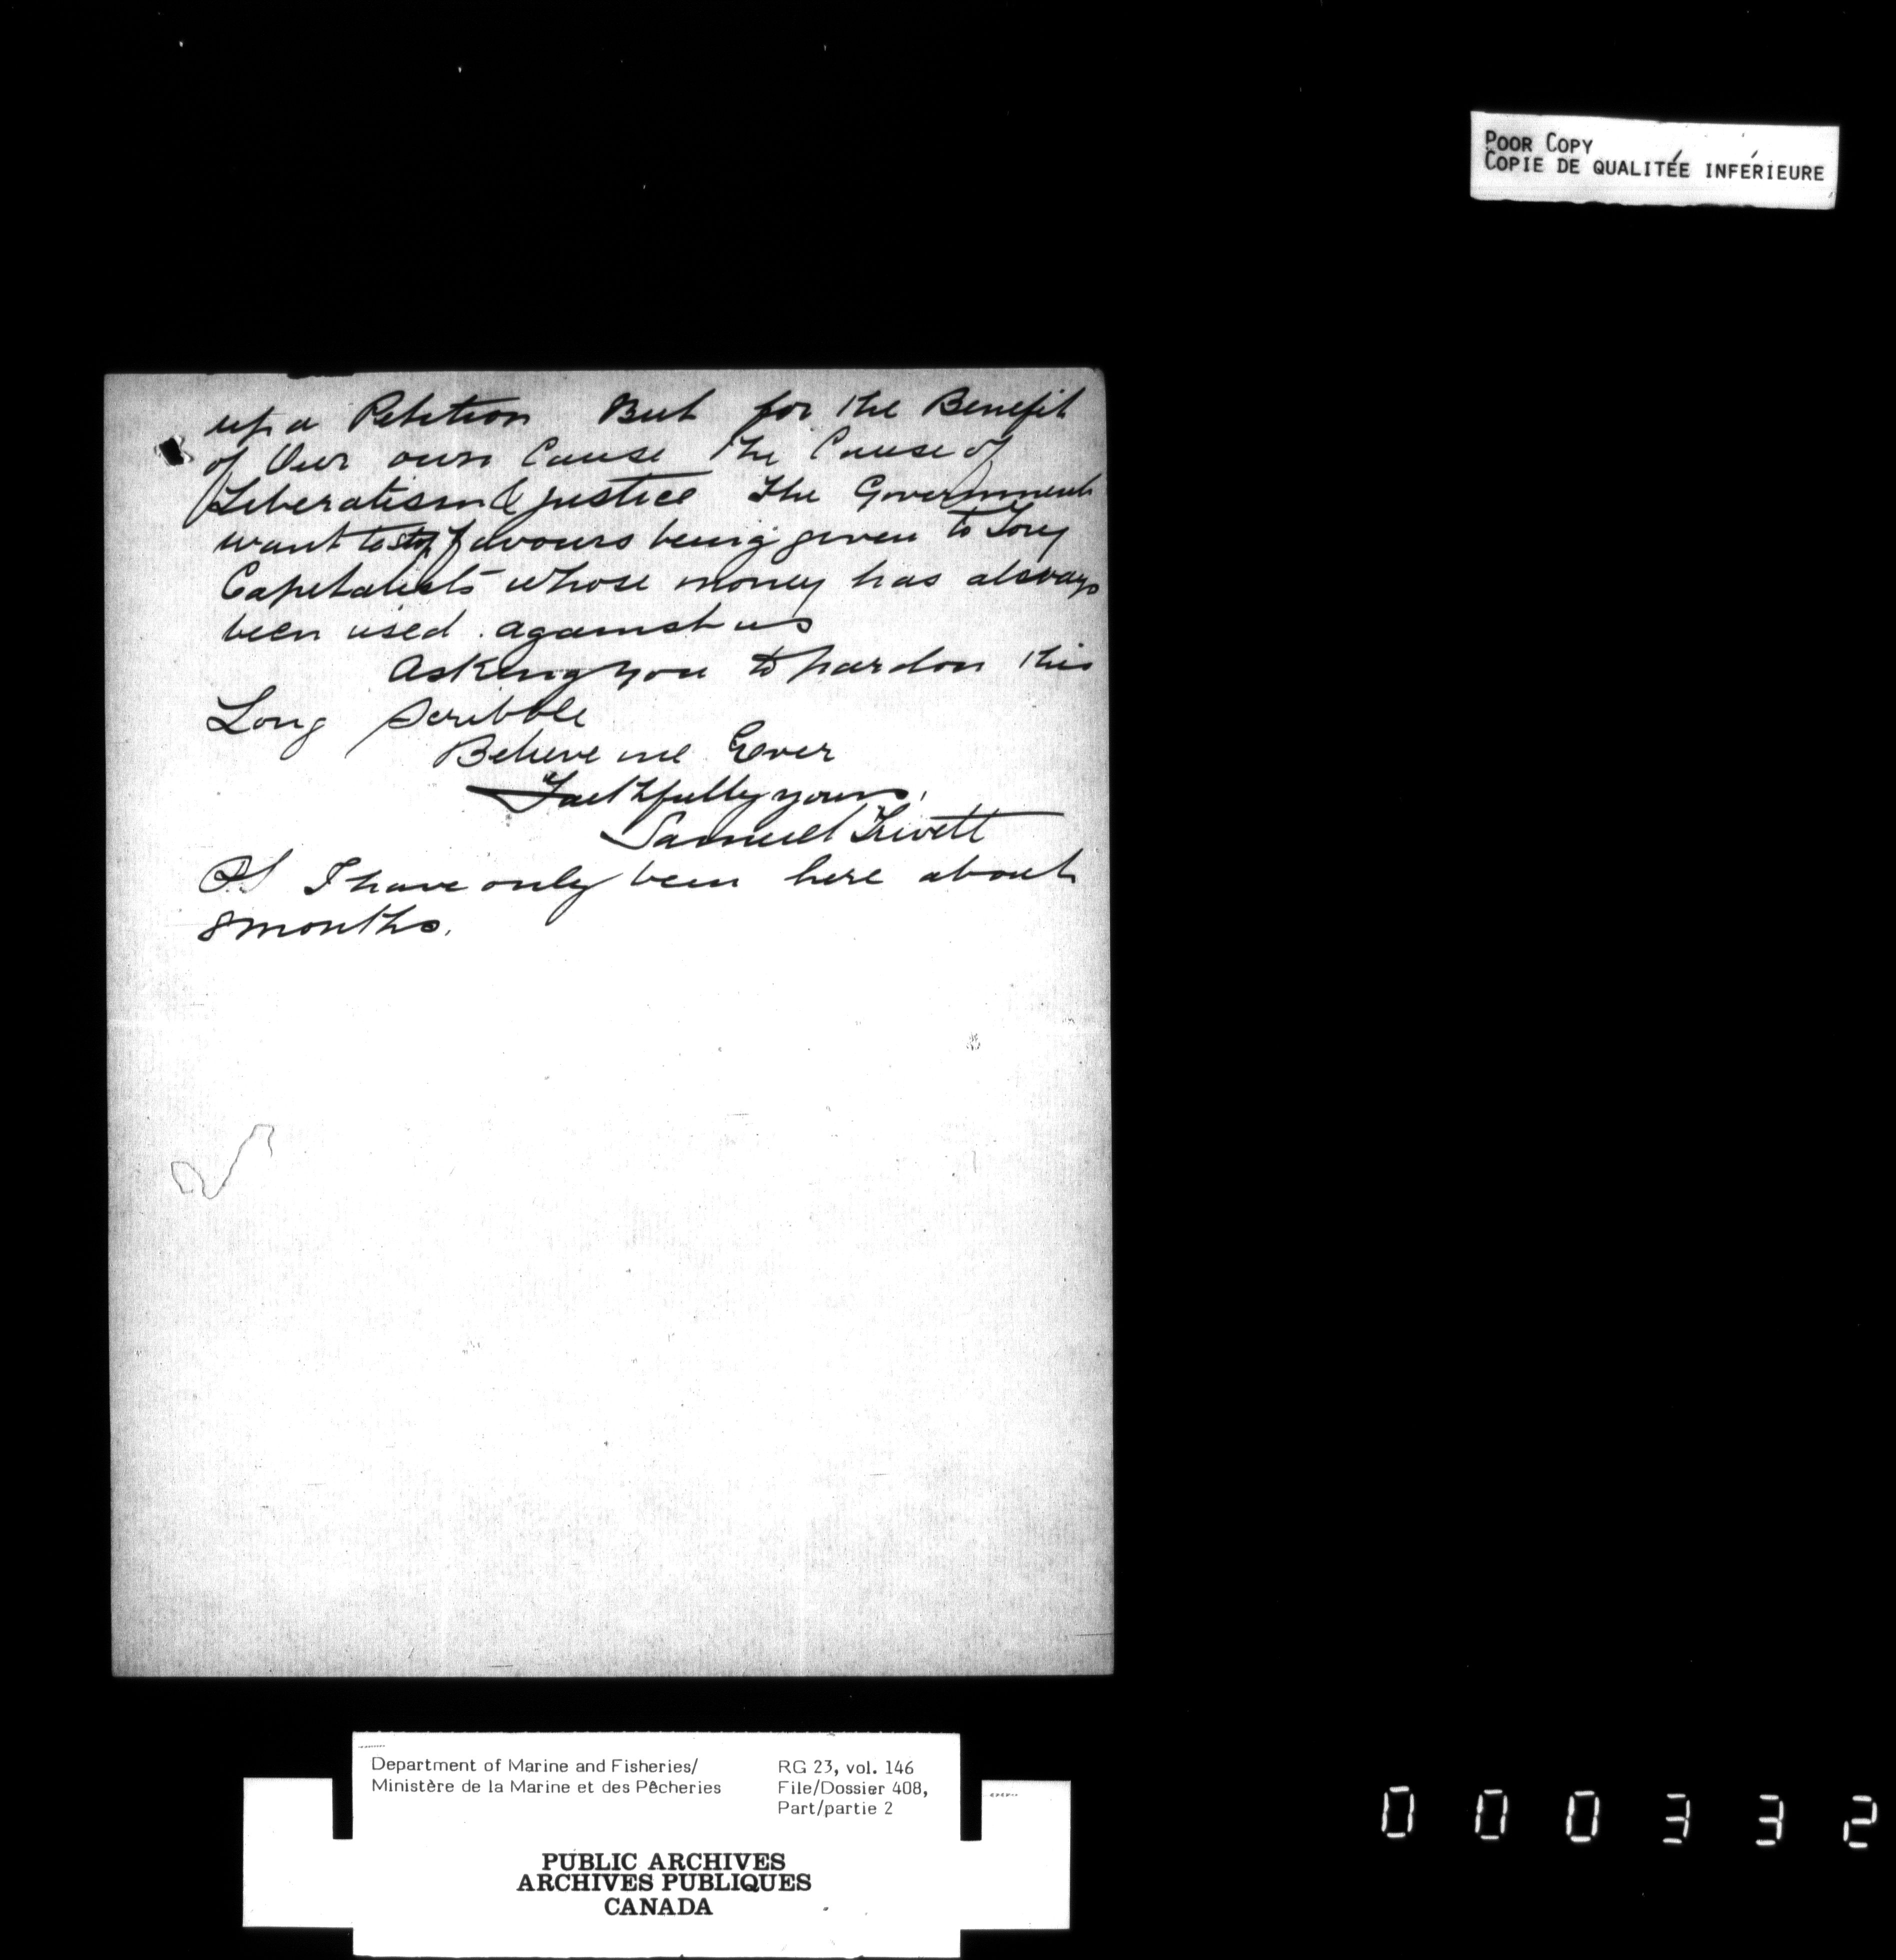 POOR COPY
COPIE DE QUALITÉE INFÉRIEURE
up a Petition But for the Benefit
of Our own Cause the Cause of
Liberalism & justice The Government
want to stop favours being given to Tory
Capitalists whose money has always
been used against us
Asking you to pardon this
Long Scribble
Believe me Ever
Faithfully yours,
Samuel Trivett
PS I have only been here about
8 months.
Department of Marine and Fisheries/
Ministère de la Marine et des Pêcheries
RG 23, vol. 146
File/Dossier 408,
Part/partie 2
PUBLIC ARCHIVES
ARCHIVES PUBLIQUES
CANADA
000332